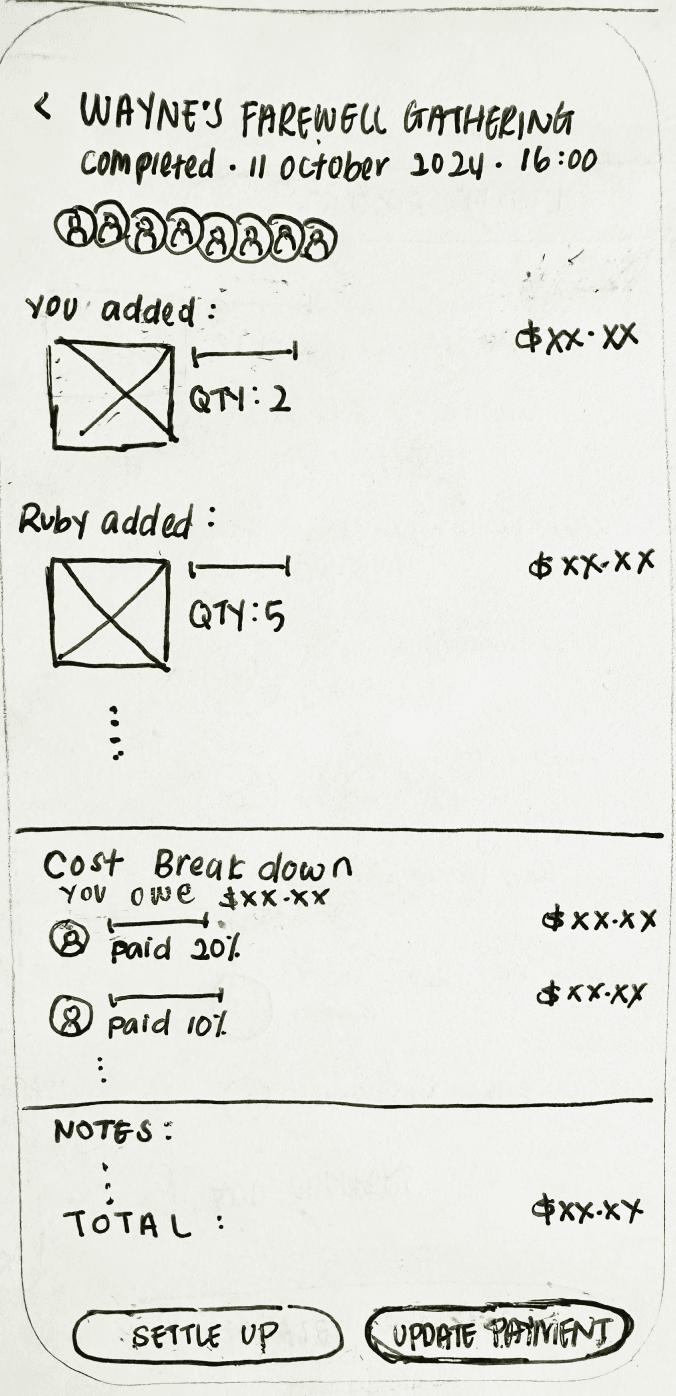 < WAYNE'S FAREWELL GATHERING
completed · 11 October 2024 · 16:00
You added:
$XX.XX
QTY: 2
Ruby added:
$XX.XX
QTY: 5
Cost Breakdown
You owe $XX.XX
$XX.XX
paid 20%
$XX.XX
paid 10%
NOTES:
TOTAL : $XX.XX
SETTLE UP UPDATE PAYMENT